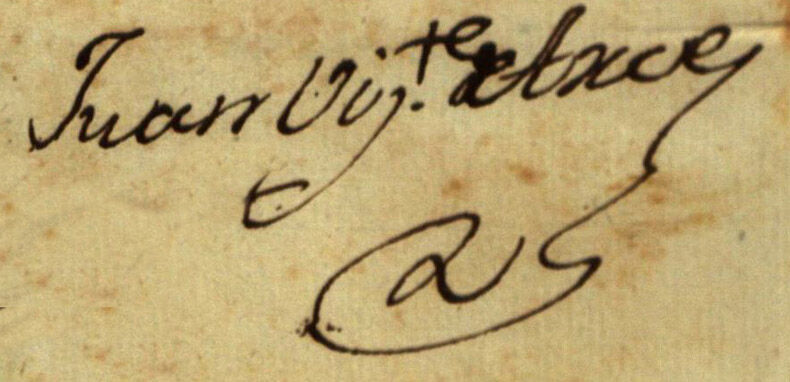 Juan Viz.te de Arce